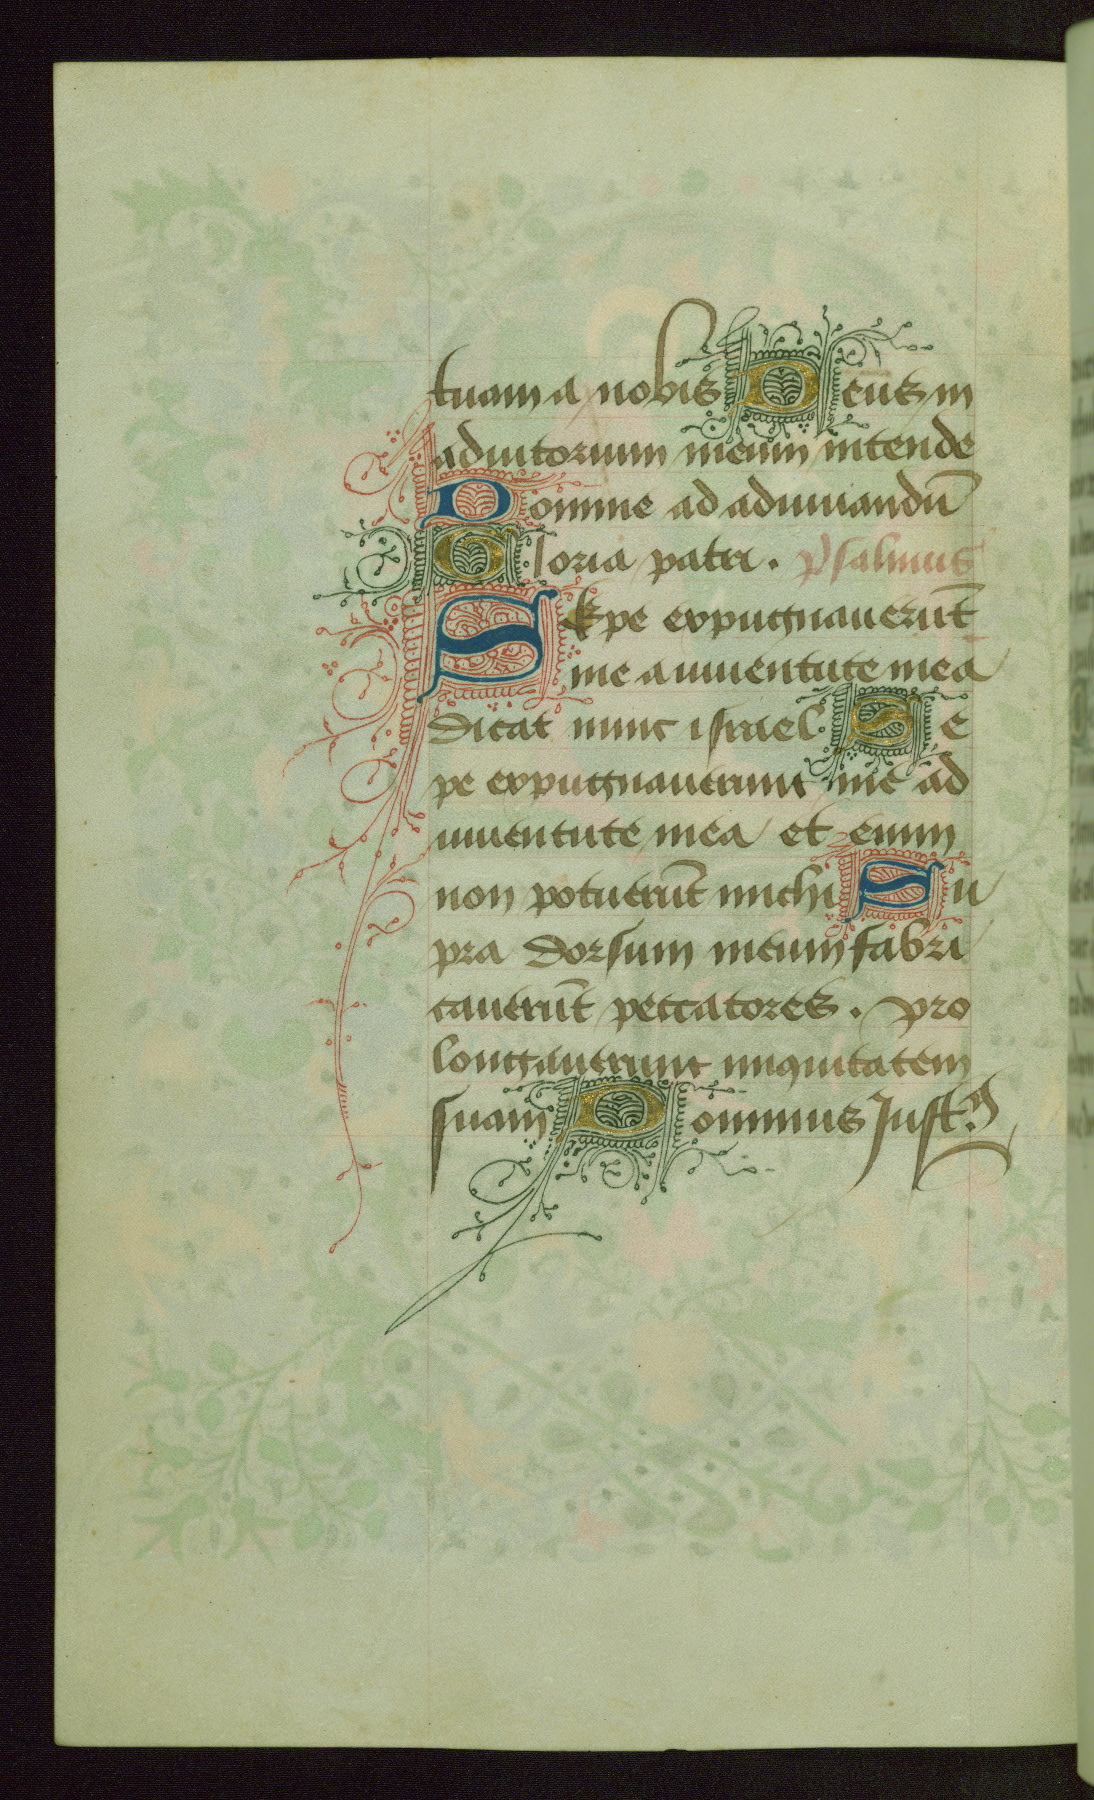 tuam a nobis Deus in
adiutorium meum intende
Domine ad adiuuandū
Gloria patri. psalmus
Sepe expugnauerūt
me a iuuentute mea
dicat nunc israel. Se
pe expugnauerunt me ad
iuuentute mea et enim
non potuerūt michi Su
pra dorsum meum fabri
cauerūt peccatores. pro
longauerunt iniquitatem
suam Dominus Just9